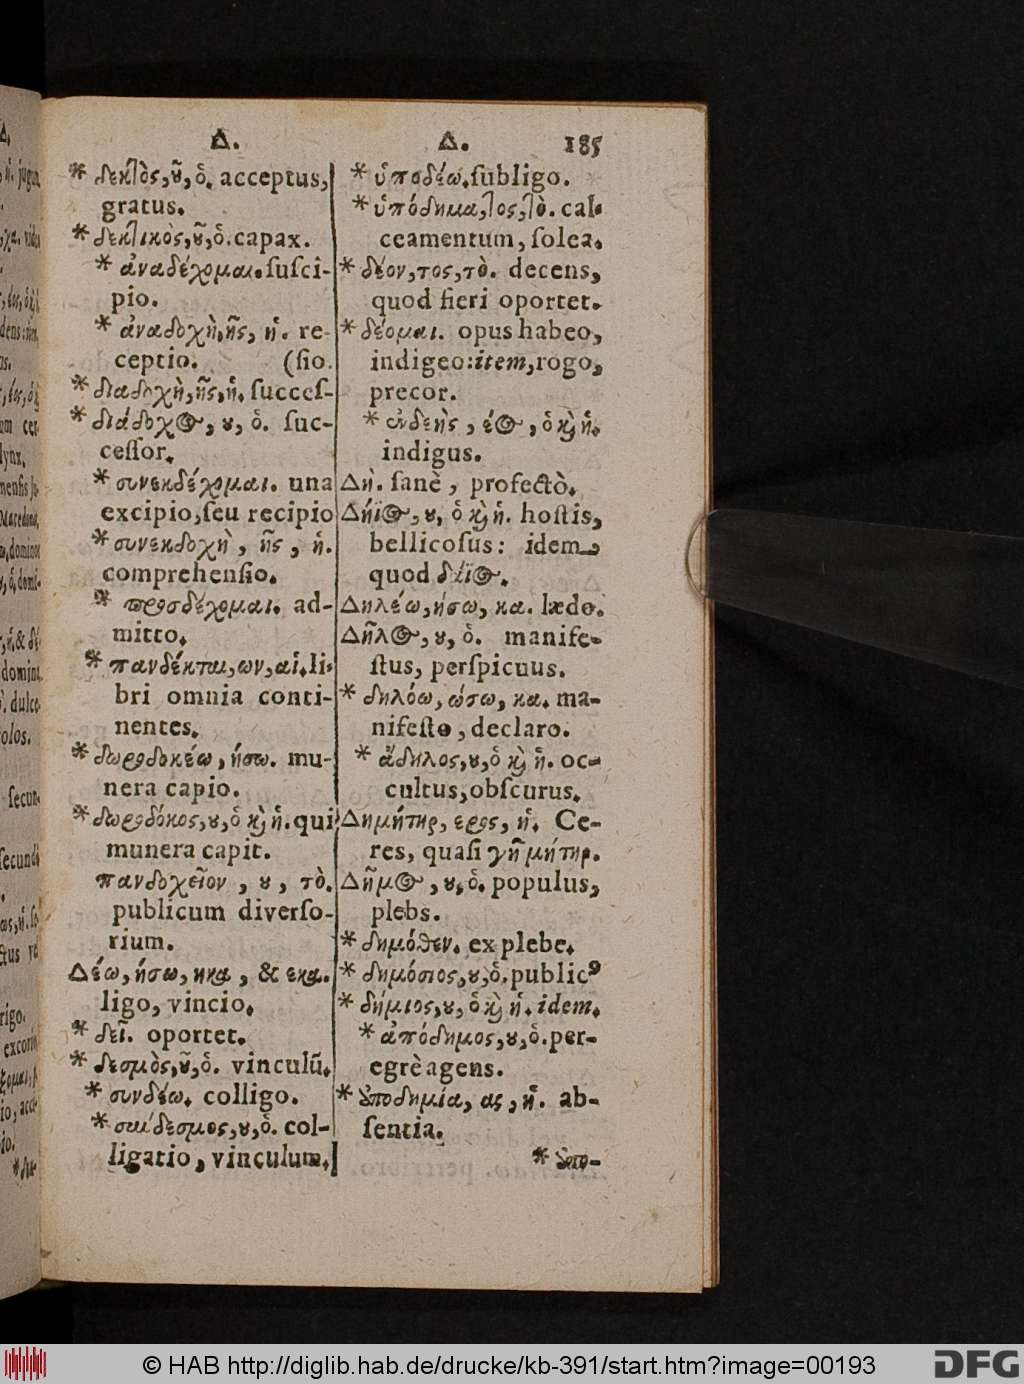 Δ.
Δ. 185
* δεκτὸς, ȣ͂, ὁ. acceptus,
gratus.
* δεκτικὸς, ȣ͂, ὁ. capax.
* ἀναδέχομαι. ſuſci-
pio.
* ἀναδοχὴ, ῆς, ἡ. re-
ceptio. (ſio.
* διαδοχὴ, ῆς, ἡ. ſucceſ-
* διάδοχος, ȣ, ὁ. ſuc-
ceſſor.
* συνεκδέχομαι. una
excipio, ſeu recipio
* συνεκδοχὴ, ῆς, ἡ.
comprehenſio.
* προσδέχομαι. ad-
mitto.
* πανδέκται, ων, αἱ. li-
bri omnia conti-
nentes.
* δωροδοκέω, ήσω. mu-
nera capio.
* δωροδόκος, ȣ, ὁ ϗ ἡ. qui
munera capit.
πανδοχεῖον, ȣ, τὸ.
publicum diverſo-
rium.
Δέω, ήσω, ηκα, & εκα.
ligo, vincio.
* δεῖ. oportet.
* δεσμὸς, ȣ͂, ὁ. vinculũ.
* συνδέω. colligo.
* σύνδεσμος, ȣ, ὁ. col-
ligatio, vinculum.
* ὑποδέω. ſubligo.
* ὑπόδημα, τος, τὸ. cal-
ceamentum, ſolea.
* δέον, τος, τὸ. decens,
quod fieri oportet.
* δέομαι. opus habeo,
indigeo: item, rogo,
precor.
* ἐνδεὴς, έος, ὁ ϗ ἡ.
indigus.
Δὴ. ſanè, profectò.
Δήϊος, ȣ, ὁ ϗ ἡ. hoſtis,
bellicoſus: idem
quod δάϊος.
Δηλέω, ήσω, κα. lædo.
Δῆλος, ȣ, ὁ. manife-
ſtus, perſpicuus.
* δηλόω, ώσω, κα. ma-
nifeſto, declaro.
* ἄδηλος, ȣ, ὁ ϗ ἡ. oc-
cultus, obſcurus.
Δημήτηρ, ερος, ἡ. Ce-
res, quaſi γῆ μήτηρ.
Δῆμος, ȣ, ὁ. populus,
plebs.
* δημόθεν. ex plebe.
* δημόσιος, ȣ, ὁ. publicꝰ
* δήμιος, ȣ, ὁ ϗ ἡ. idem.
* ἀπόδημος, ȣ, ὁ. per-
egrè agens.
* ἀποδημία, ας, ἡ. ab-
ſentia.
* ἀπο-
© HAB http://diglib.hab.de/drucke/kb-391/start.htm?image=00193
DFG